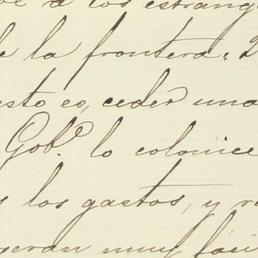 a los estrang
de la frontera: 2
esto es, ceder una
Gobº. lo colonice
los gastos, y r
eran muy fáci